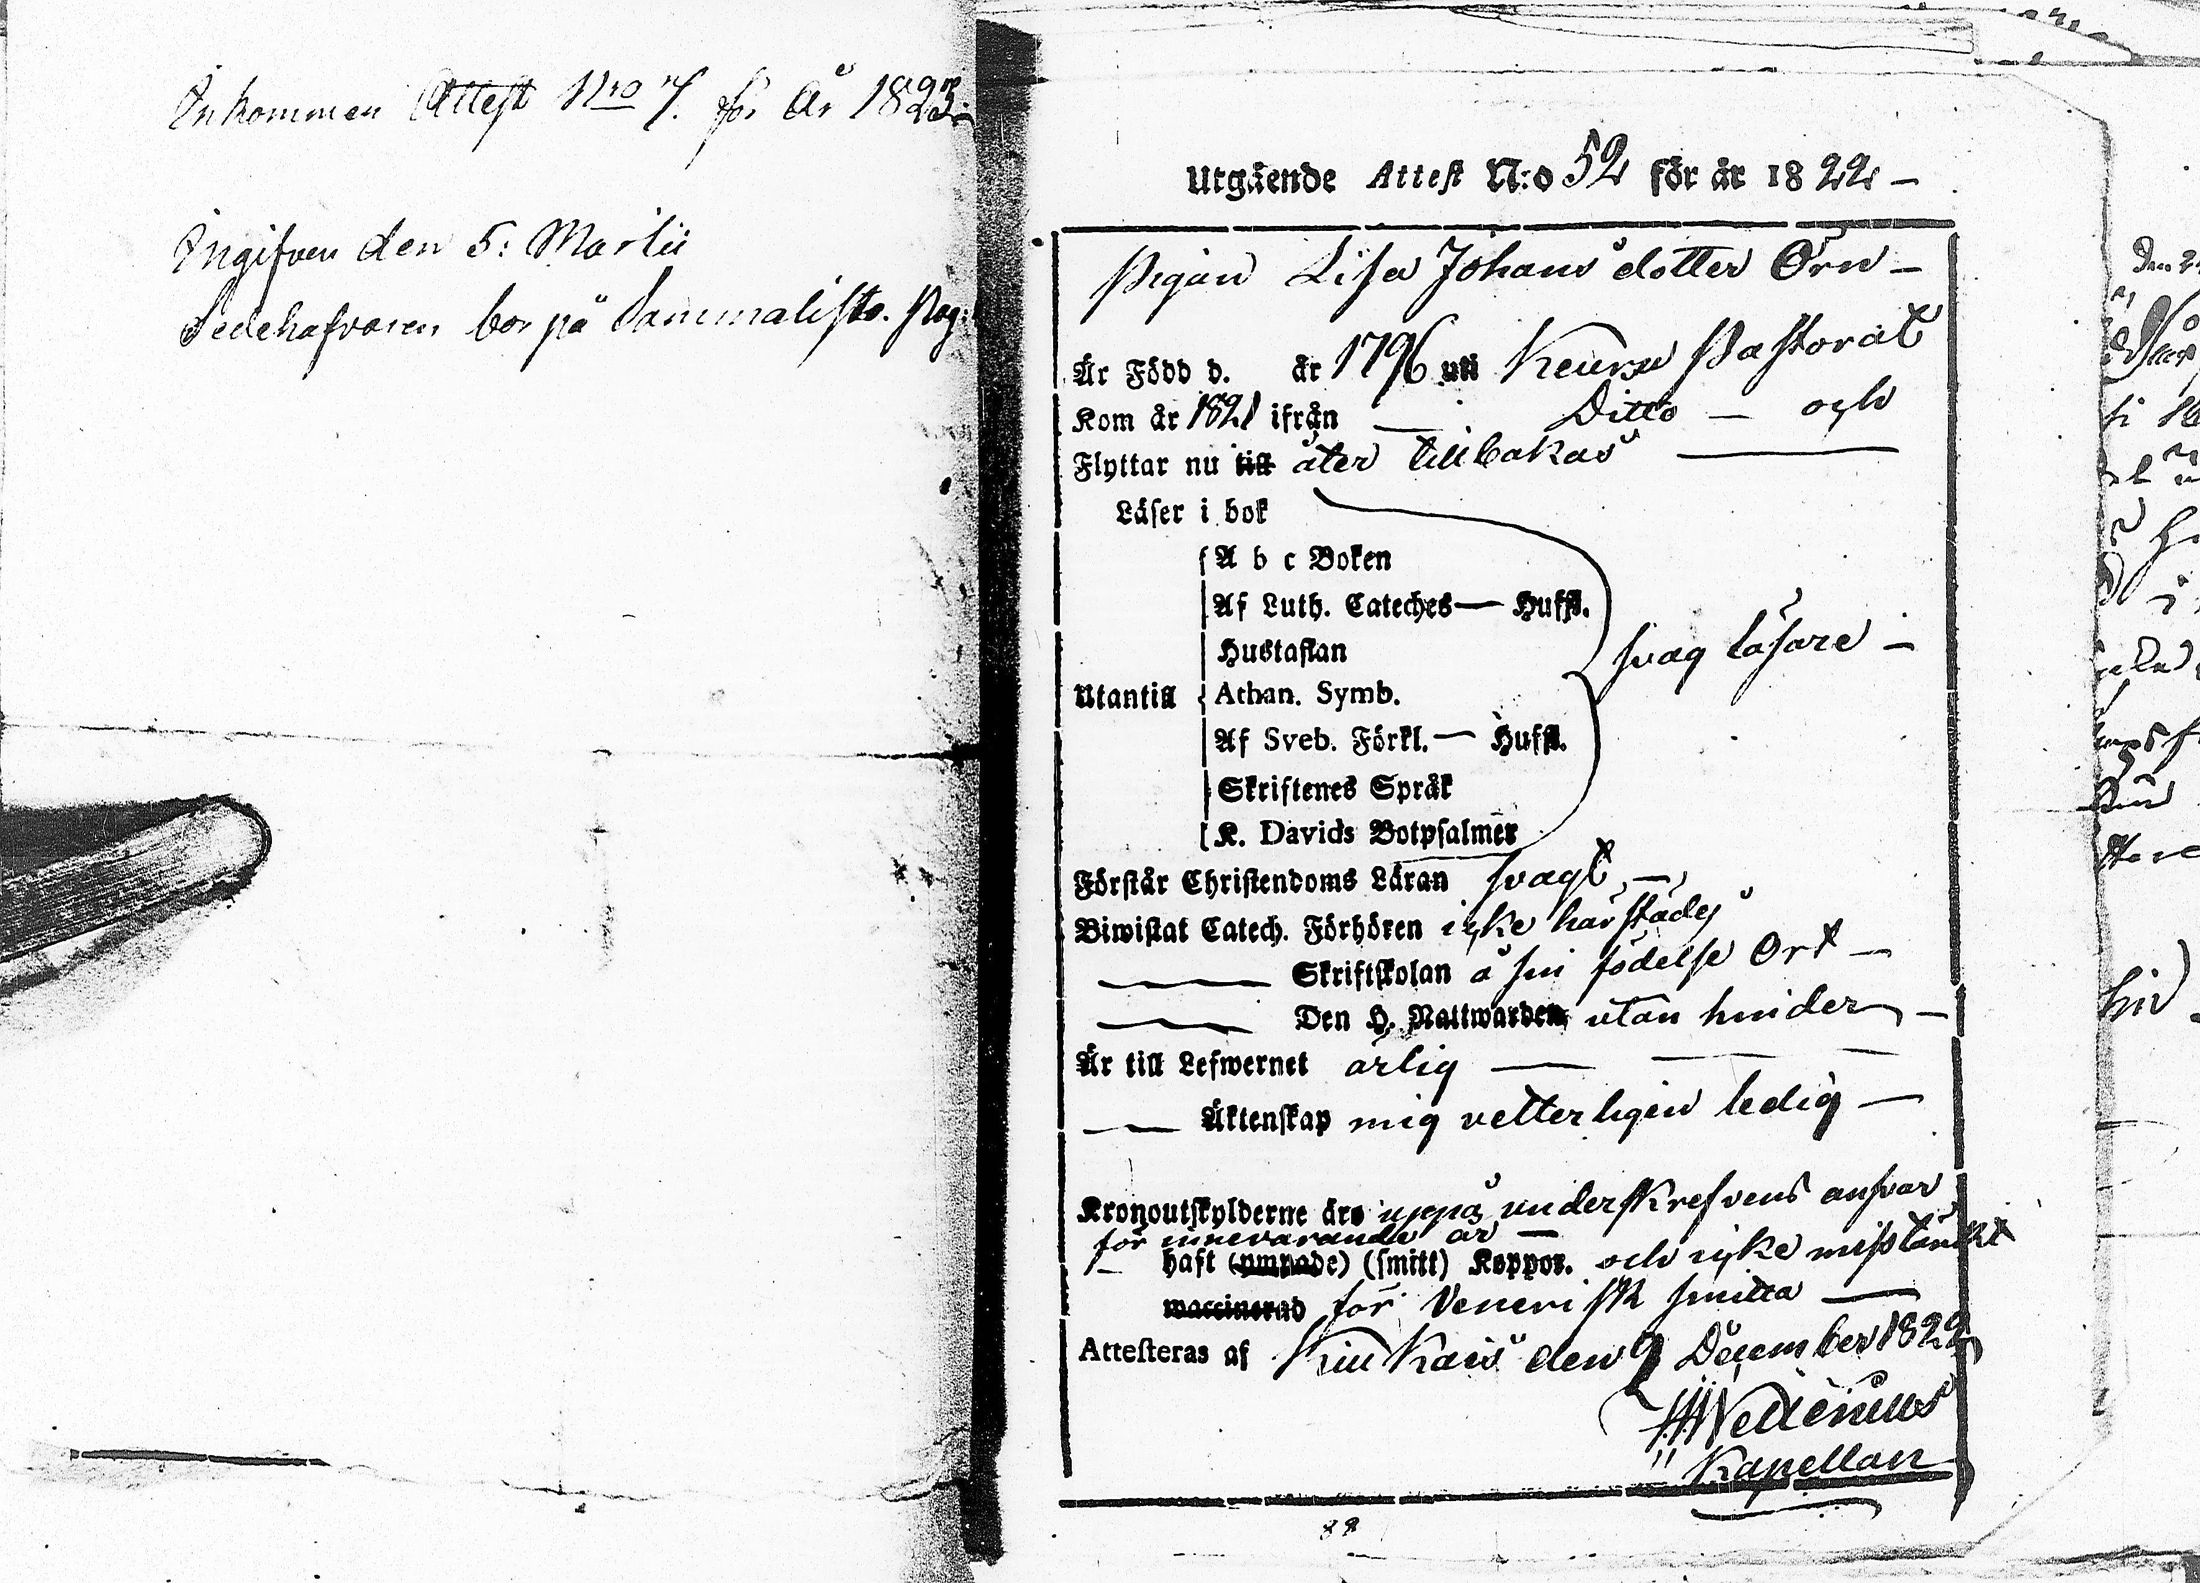 Inkommen Attest Nro 7. för År 1823.
Ingifven den 5: Martii
Innehafvaren bor på Sammalisto. Pag:
Utgående Attest N:o 52 för år 1822 –
Pigan Lisa Johans dotter Örn –
Är Född d. år 1796 uti Keuru Pastorat
Kom år 1821 ifrån — Ditto — och
Flyttar nu till åter tillbakas —
Läser i bok
A b c Boken
Af Luth. Cateches — Huffl.
Hustaflan
svag läsare –
Utantill Athan. Symb.
Af Sveb. Förkl. — Huffl.
Skriftenes Språk
K. Davids Botpsalmer
Förstår Christendoms Läran svagt –
Biwistat Catech. Förhören icke härstädes
— Skriftskolan å sin födelse Ort –
— Den H. Nattwarden utan hinder –
Är till Lefwernet ärlig —
— Äktenskap mig vetterligen ledig –
Kronoutskylderne äro uppå underskrefvens ansvar
för innevarande år —
haft (ympade) (smitt) Koppor. och icke misstänkt
waccinerad för Venerisk smitta —
Attesteras af Kiukais den 9 December 1822
Kapellan